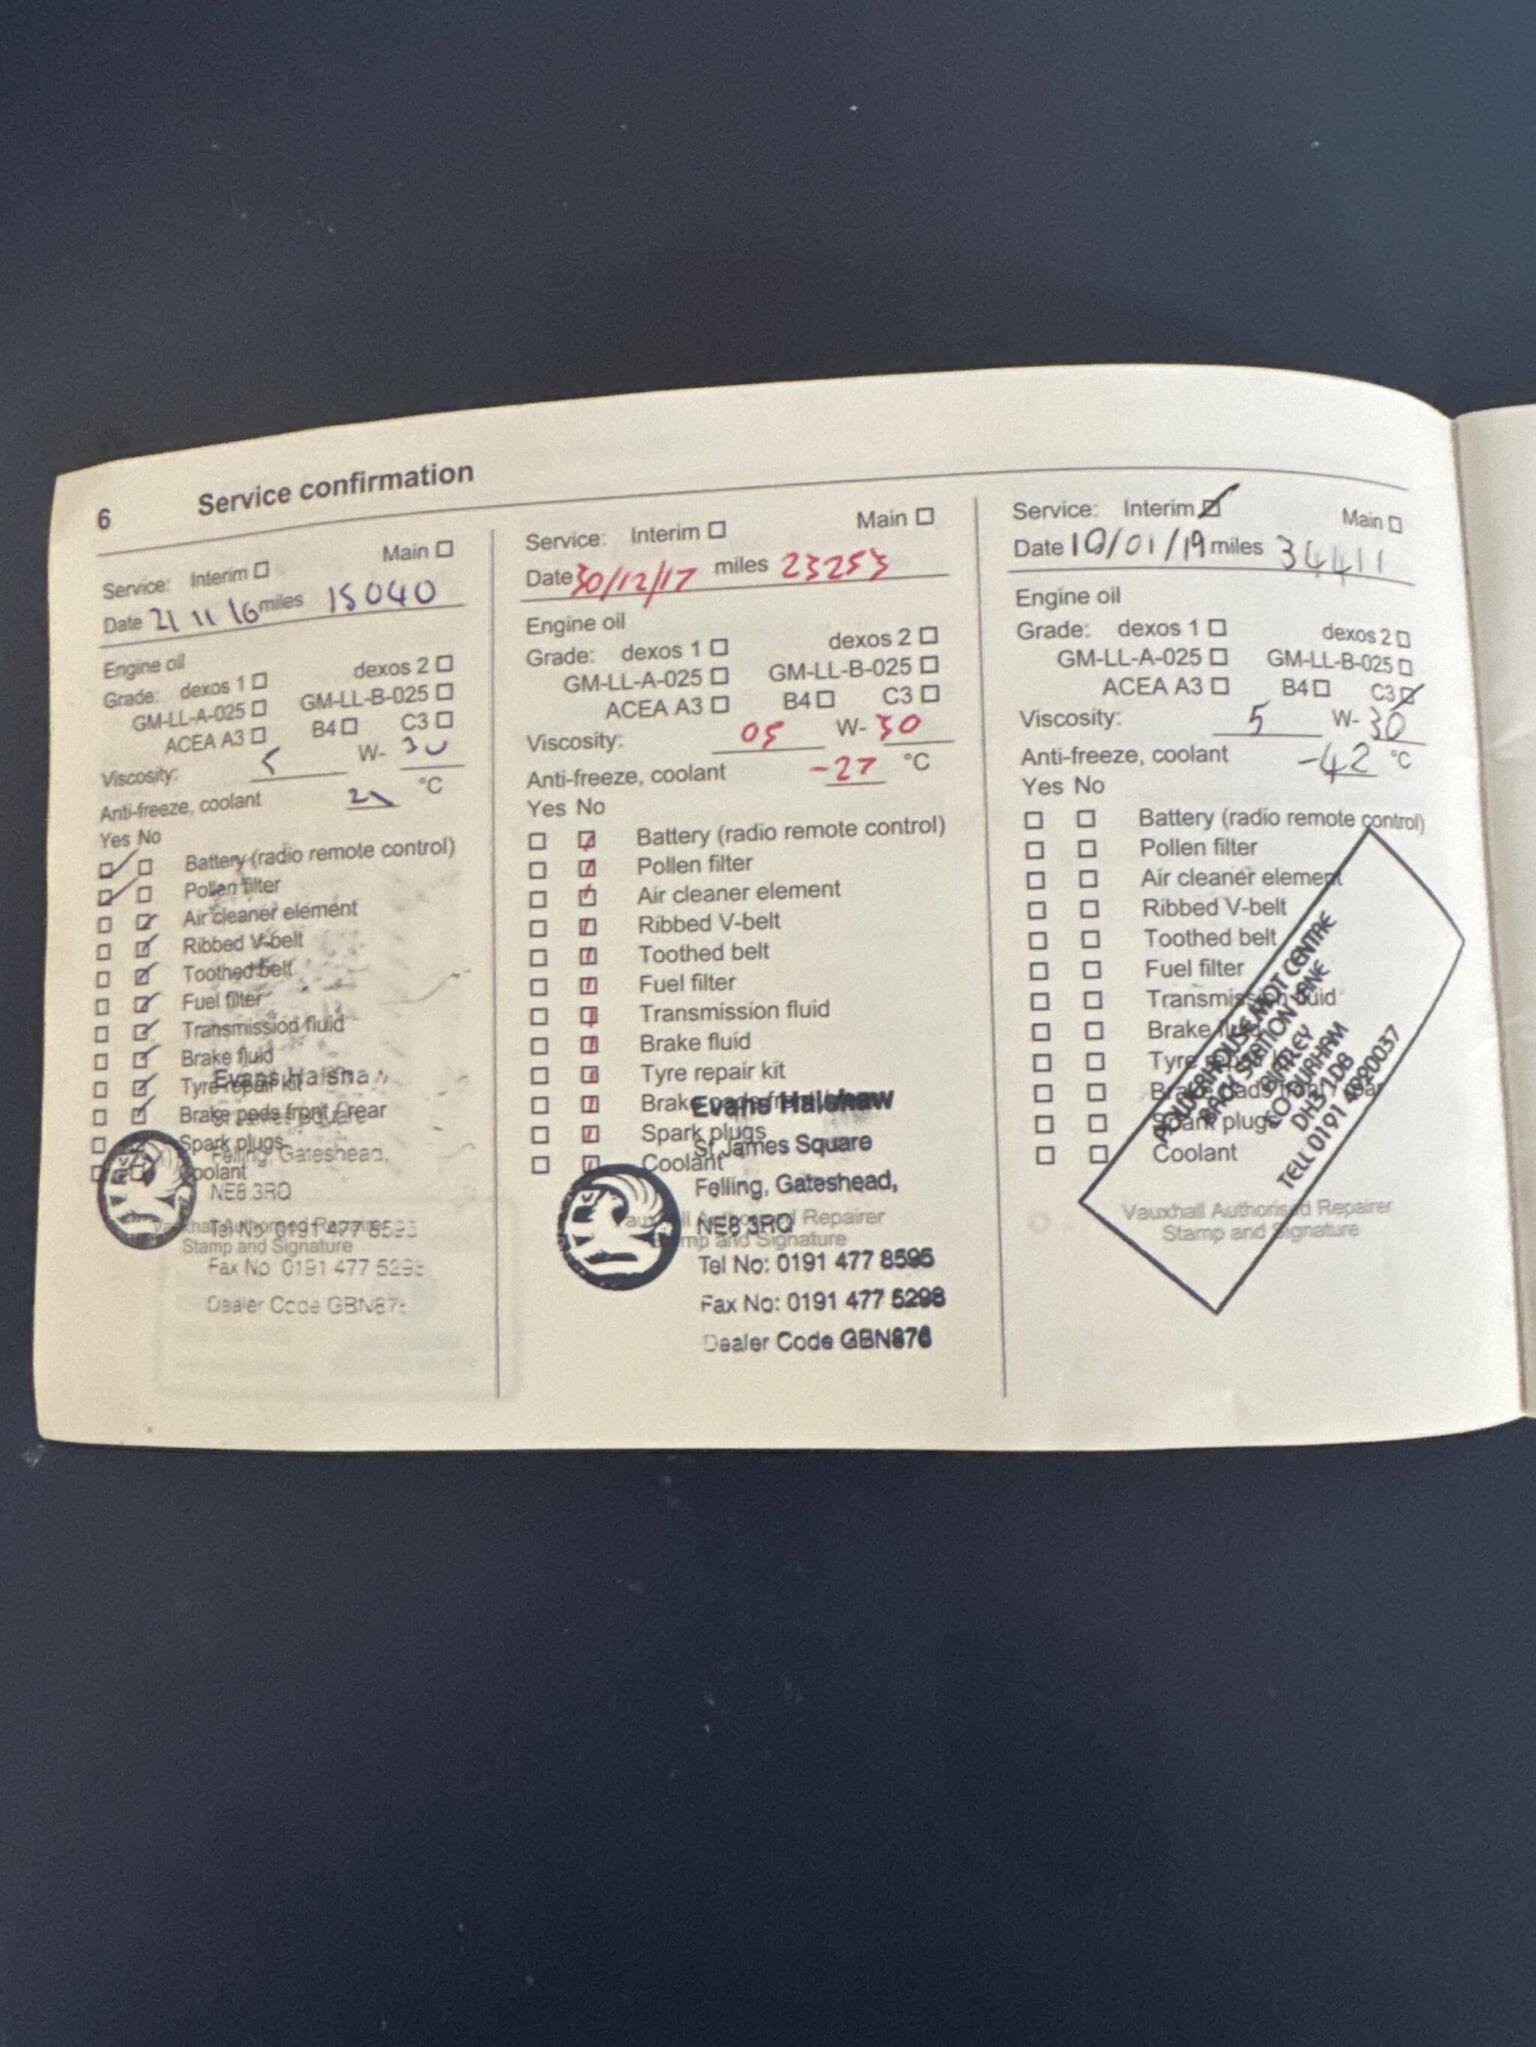 6 Service confirmation
Service: Interim Main
Date 21 11 16 miles 15040
Engine oil
Grade: dexos 1 dexos 2
GM-LL-A-025 GM-LL-B-025
ACEA A3 B4 C3
Viscosity: 5 W- 30
Anti-freeze, coolant °C
Yes No
Battery (radio remote control)
Pollen filter
Air cleaner element
Ribbed V-belt
Toothed belt
Fuel filter
Transmission fluid
Brake fluid
Tyre repair kit
Brake pads front / rear
Spark plugs
Coolant
Vauxhall Authorised Repairer
Stamp and Signature
Evans Halshaw
St James Square
Felling, Gateshead,
NE8 3RQ
Tel No: 0191 477 8595
Fax No: 0191 477 5298
Dealer Code GBN876
Service: Interim Main
Date 30/12/17 miles 23253
Engine oil
Grade: dexos 1 dexos 2
GM-LL-A-025 GM-LL-B-025
ACEA A3 B4 C3
Viscosity: 05 W- 30
Anti-freeze, coolant -27 °C
Yes No
Battery (radio remote control)
Pollen filter
Air cleaner element
Ribbed V-belt
Toothed belt
Fuel filter
Transmission fluid
Brake fluid
Tyre repair kit
Brake pads front / rear
Spark plugs
Coolant
Vauxhall Authorised Repairer
Stamp and Signature
Evans Halshaw
St James Square
Felling, Gateshead,
NE8 3RQ
Tel No: 0191 477 8595
Fax No: 0191 477 5298
Dealer Code GBN876
Service: Interim Main
Date 10/01/19 miles 34411
Engine oil
Grade: dexos 1 dexos 2
GM-LL-A-025 GM-LL-B-025
ACEA A3 B4 C3
Viscosity: 5 W- 30
Anti-freeze, coolant -42 °C
Yes No
Battery (radio remote control)
Pollen filter
Air cleaner element
Ribbed V-belt
Toothed belt
Fuel filter
Transmission fluid
Brake fluid
Tyre repair kit
Brake pads front / rear
Spark plugs
Coolant
Vauxhall Authorised Repairer
Stamp and Signature
MOT CENTRE
BACK STATION LANE
BIRTLEY
CO DURHAM
DH3 1DB
TELL 0191 4920037